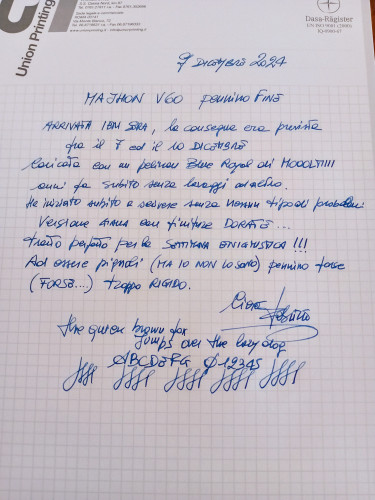 Union Printing
S.S. Cassia Nord, km 87
Sede legale e commerciale
www.unionprinting.it
Dasa-Rägister
EN ISO 9001 (2008)
IQ-0905-07
9 DICEMBRE 2024
MAJHON V60 pennino FINE
ARRIVATA IERI SERA, la consegna era prevista
fra il 7 ed il 10 DICEMBRE
Caricata con un pelikan Blue Royal di MOOOLTI!!!
anni fa subito senza lavaggi od altro.
Ha iniziato subito a scrivere senza nessun tipo di problemi
Versione con finiture DORATE...
tratto perfetto per la SETTIMANA ENIGMISTICA !!!
Ad essere pignoli (MA IO NON LO SONO) pennino forse
(FORSE...) troppo RIGIDO.
the quick brown fox
jumps over the lazy dog
ABCDEFG 012345